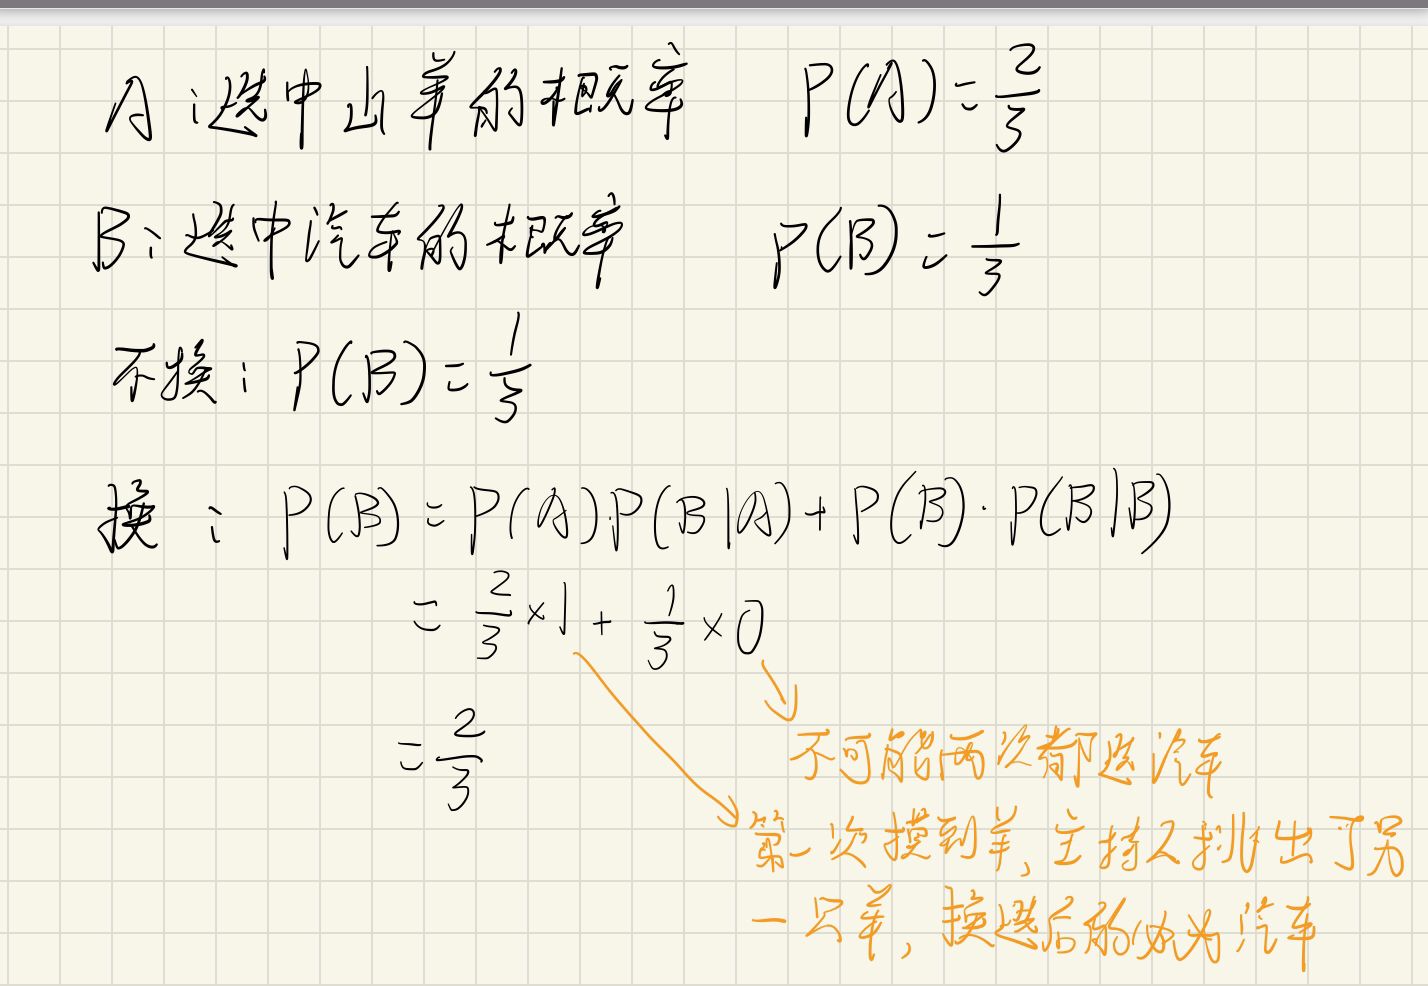 A:选中山羊的概率 P(A)=2/3
B:选中汽车的概率 P(B)=1/3
不换:P(B)=1/3
换:P(B)=P(A)·P(B|A)+P(B)·P(B|B)
=2/3×1+1/3×0
=2/3
不可能两次都选汽车
第一次摸到羊,主持人挑出了另
一只羊,换选后的必为汽车